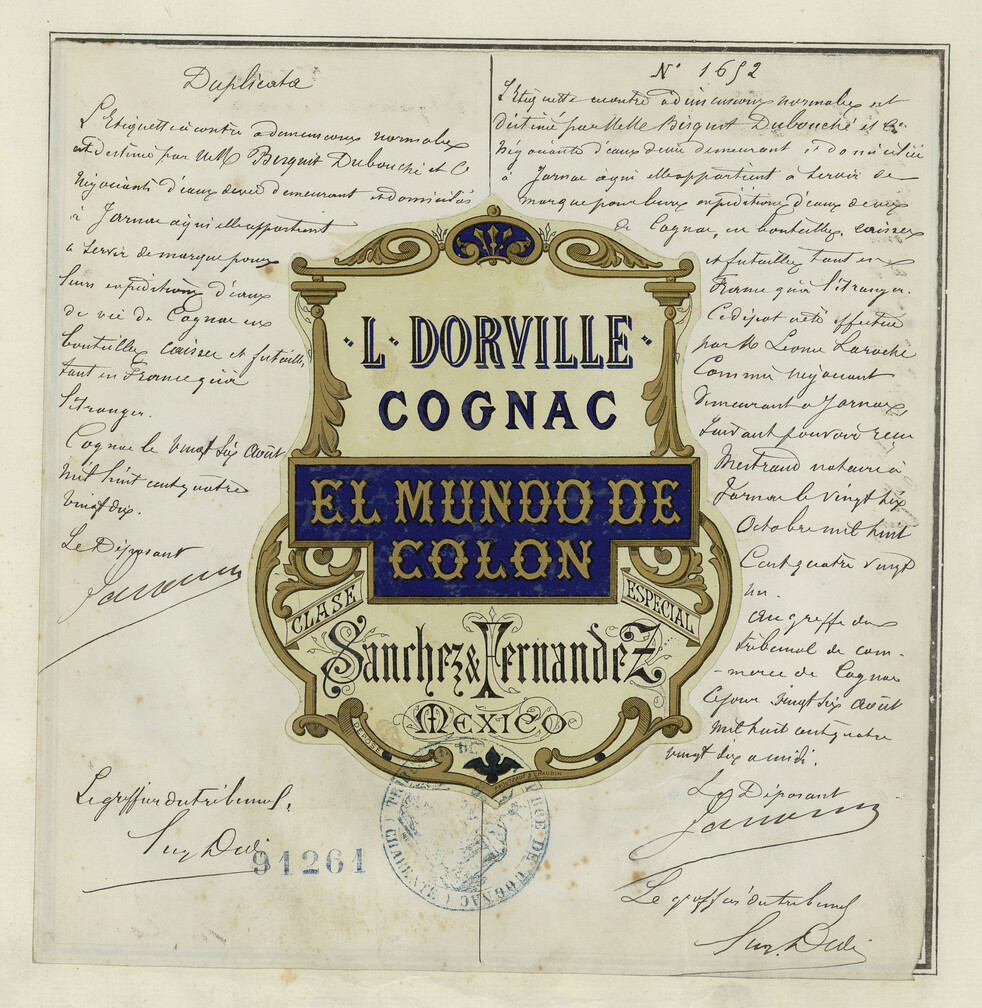 Duplicata
L'Etiquette ci contre a dimensions normales
est destiné par MM Bisquit Dubouché et C
Négociants d'eaux de vie demeurant et domiciliés
à Jarnac à qui elle appartient
a servir de marque pour
leurs expéditions d'eaux
de vie de Cognac en
bouteilles, caisses et futailles,
tant en France qu'à
l'étranger.
Cognac le vingt six Août
mil huit cent quatre
vingt dix.
Le Déposant
Le greffier du tribunal,
91261
N° 1652
L'Etiquette ci contre a dimensions normales est
destiné par MM Bisquit Dubouché et Cie
Négociants d'eaux de vie demeurant et domiciliés
à Jarnac à qui elle appartient a servir de
marque pour leurs expéditions d'eaux de vie
de Cognac, en bouteilles, caisses
et futailles tant en
France qu'à l'étranger.
Ce dépot a été effectué
par M Leonce Laroche
Commis négociant
demeurant a Jarnac,
suivant pouvoir reçu
Mestraud notaire à
Jarnac le vingt six
Octobre mil huit
Cent quatre vingt
un.
au greffe du
tribunal de com-
-merce de Cognac
ce jour vingt six Août
mil huit cent quatre
vingt dix a midi.
Le Déposant
Le greffier du tribunal
·L· DORVILLE·
COGNAC
EL MUNDO DE
COLON
CLASE ESPECIAL
Sanchez & Fernandez
MEXICO
DÉPOSÉ
TRIBUNAL DE COMMERCE DE COGNAC
(CHARENTE)